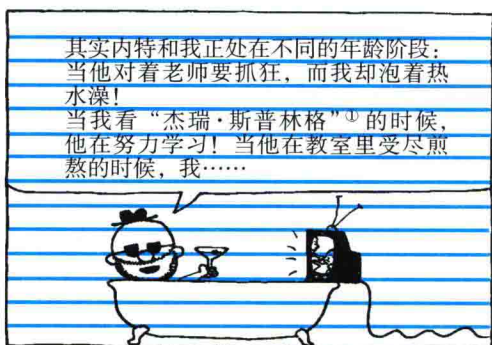 其实内特和我正处在不同的年龄阶段：
当他对着老师要抓狂，而我却泡着热
水澡！
当我看“杰瑞·斯普林格”①的时候，
他在努力学习！当他在教室里受尽煎
熬的时候，我……